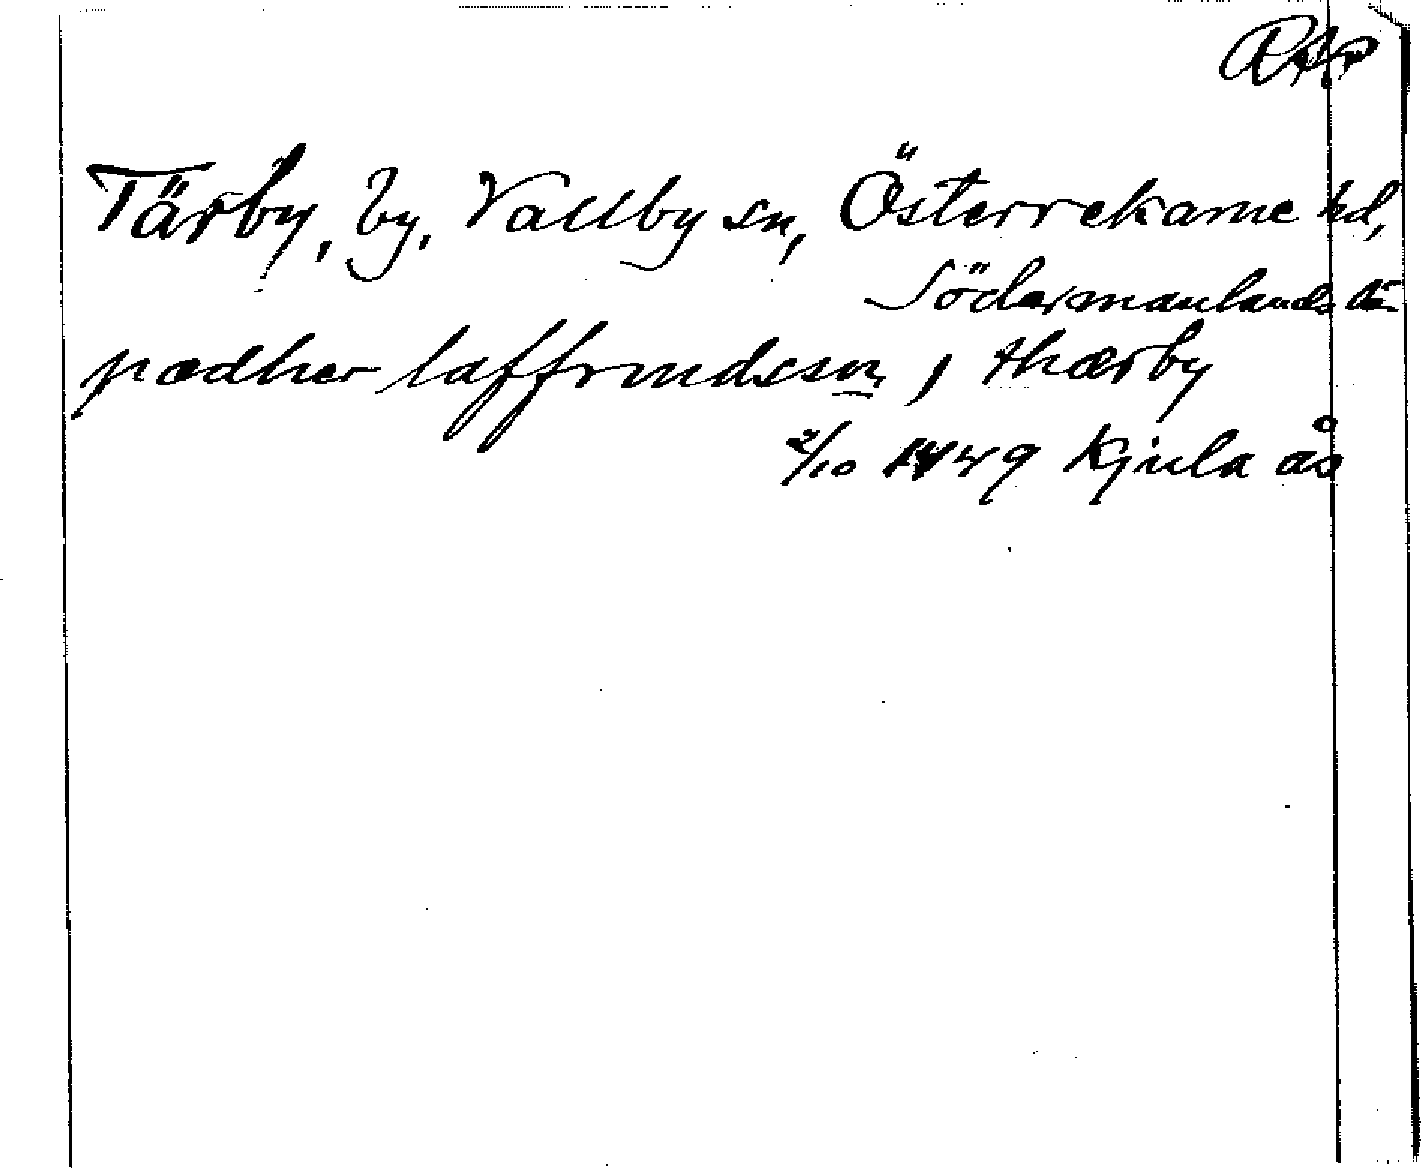 RAp
Tärby, by, Vallby sn, Österrekarne hd,
Södermanlands län
pædher laffrindsson, j thærby
2/10 1449 Kjula ås